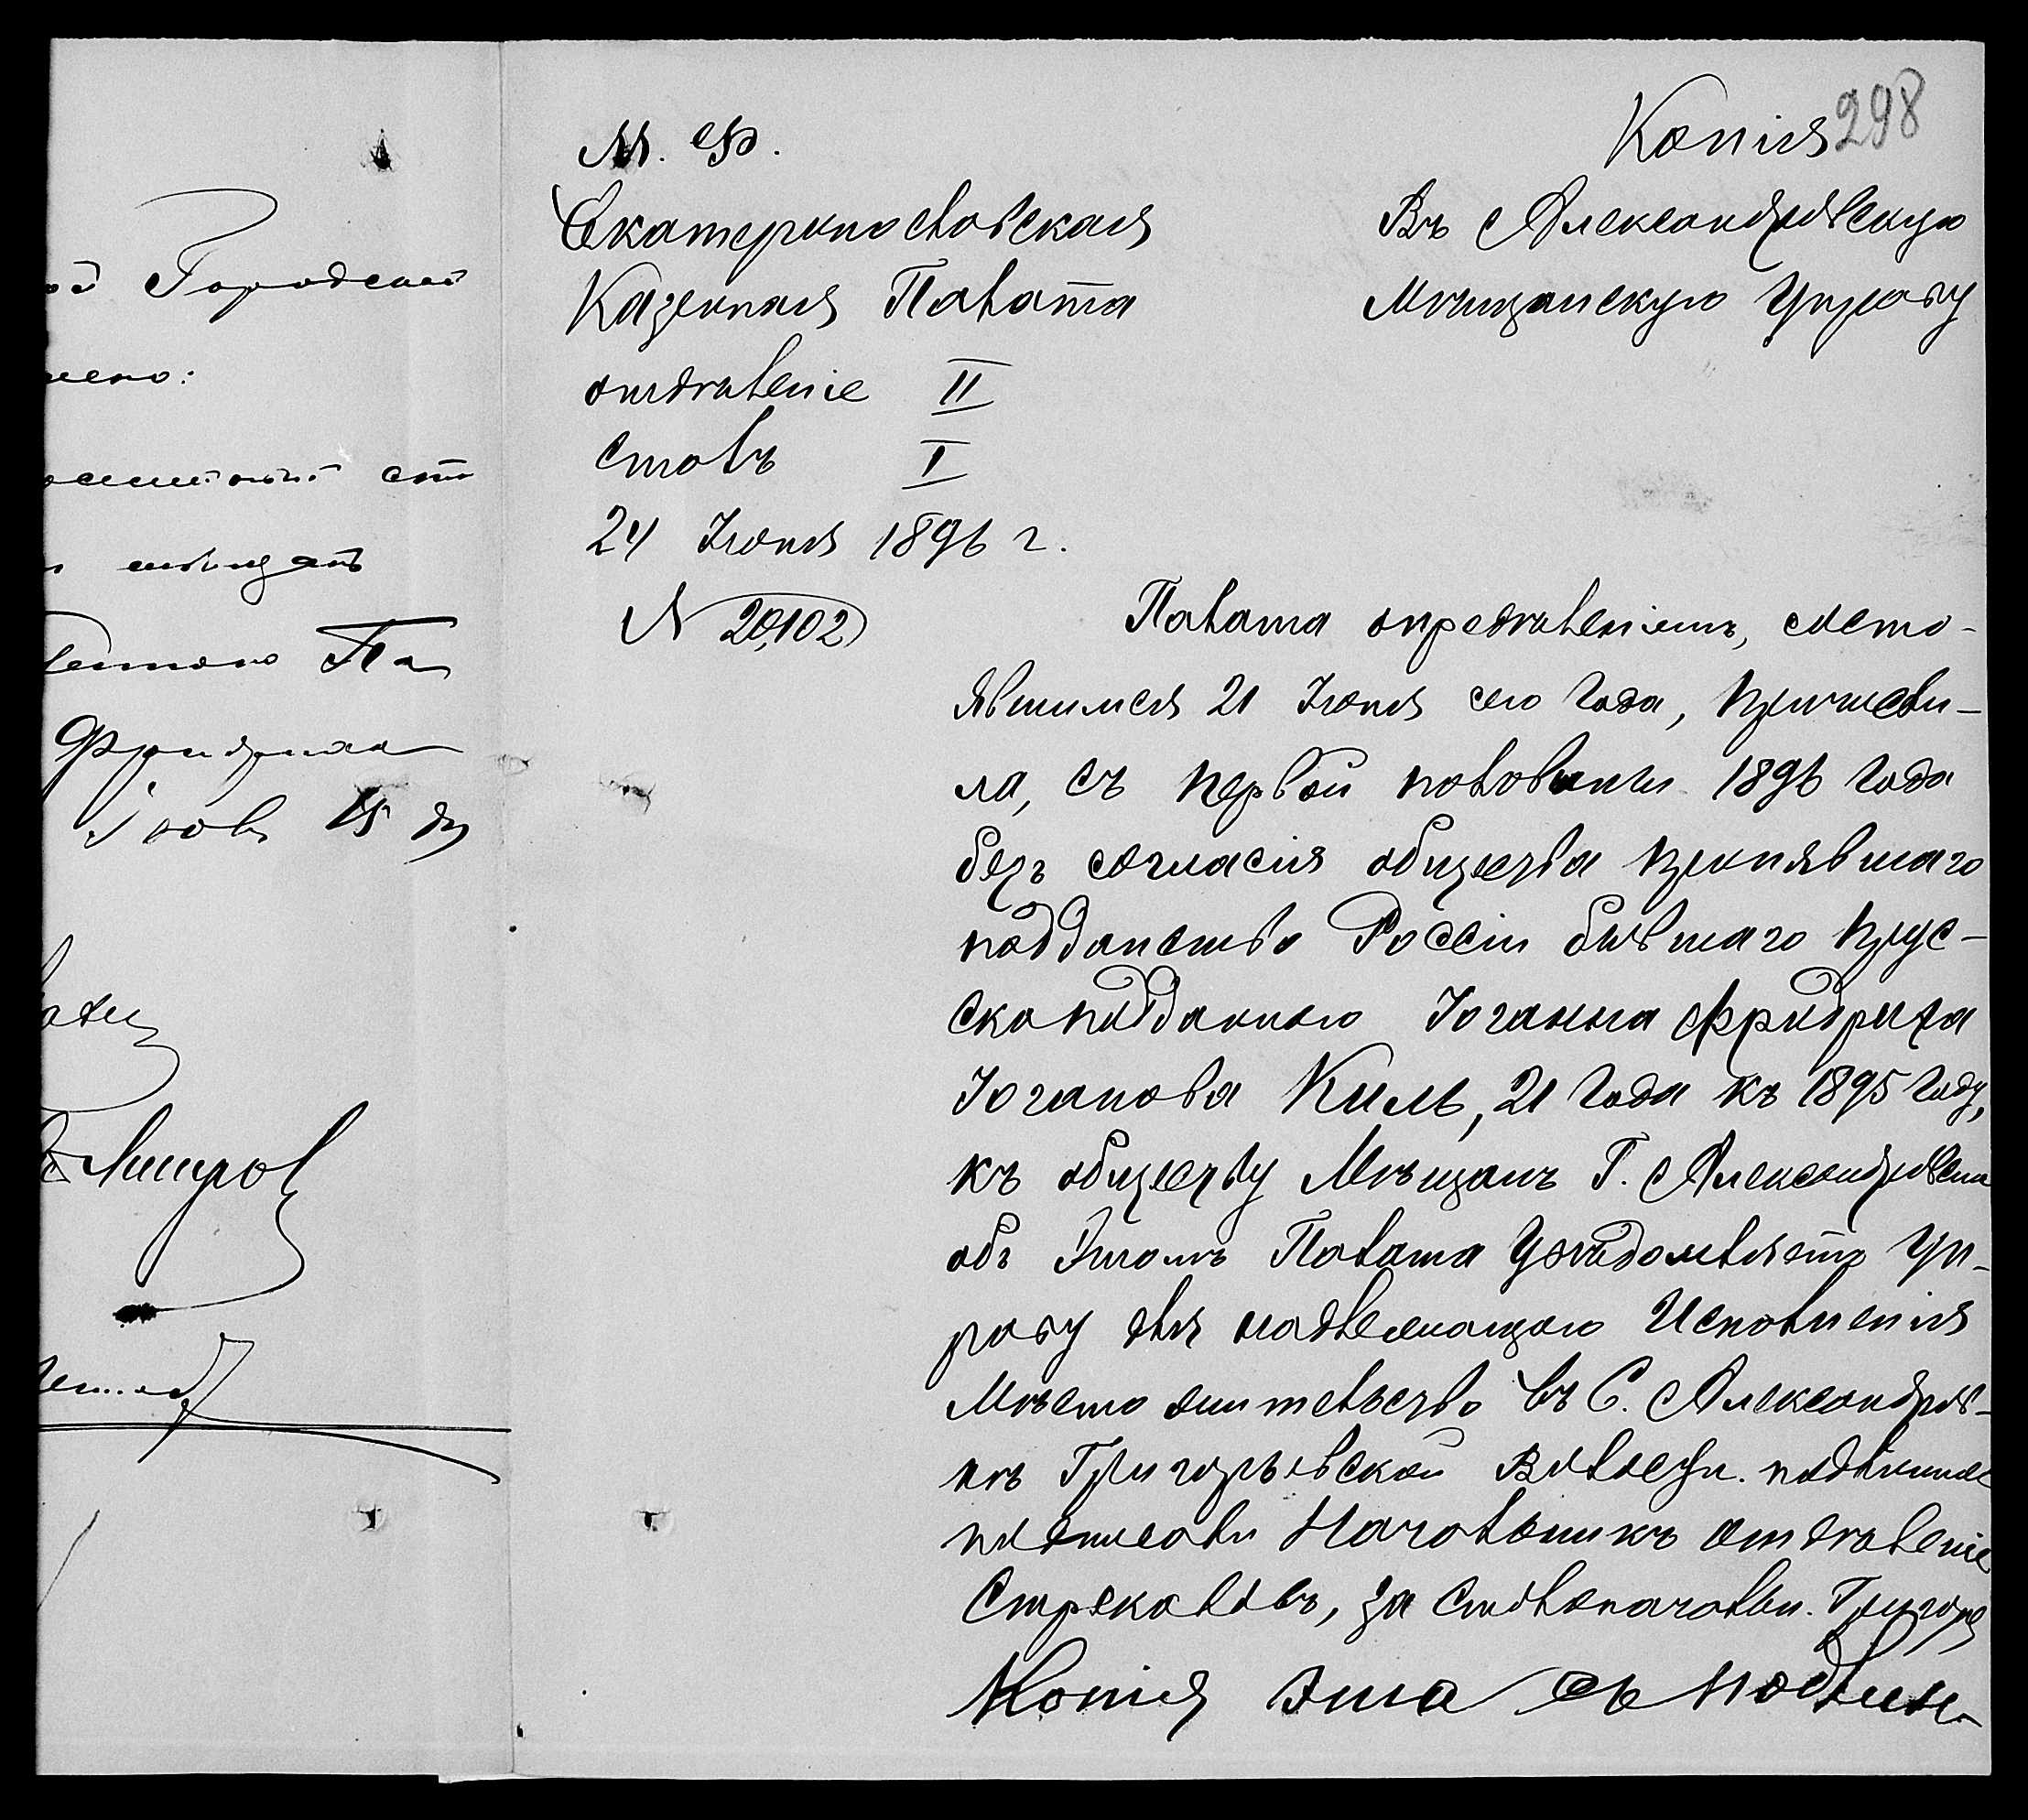 ой Городской
лено:
стο
мѣщанъ
Па
Фридриха
15 ду
298
Копія
М. Ф.
Екатеринославская
Казенная Палата
отдѣленіе II
столъ I
24 Іюня 1896 г.
N 20,102
Въ Александровскую
Мѣщанскую Управу
Палата опредѣленіемъ, состо-
явшимся 21 Іюня сего года, причисли-
ла, съ первой половины 1896 года
безъ согласія общества принявшаго
подданство Россіи бывшаго прус-
скоподданного Іоганна Фридриха
Іоганова Киль, 21 года къ 1895 году,
къ обществу Мѣщанъ Г. Александровска
объ Этомъ Палата Увѣдомляетъ Уп-
раву для надлежащаго Исполненія
Мѣсто жительство въ С. Александров-
кѣ Григорьевской Волости. подлинное
подписали Начальникъ отдѣленіе
Стрекаловъ, за Столоначальн. Григоре
Копія эта съ подлин-